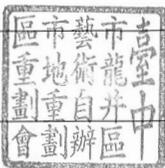 臺中
市龍井區
藝術自辦
市地重劃
區重劃會